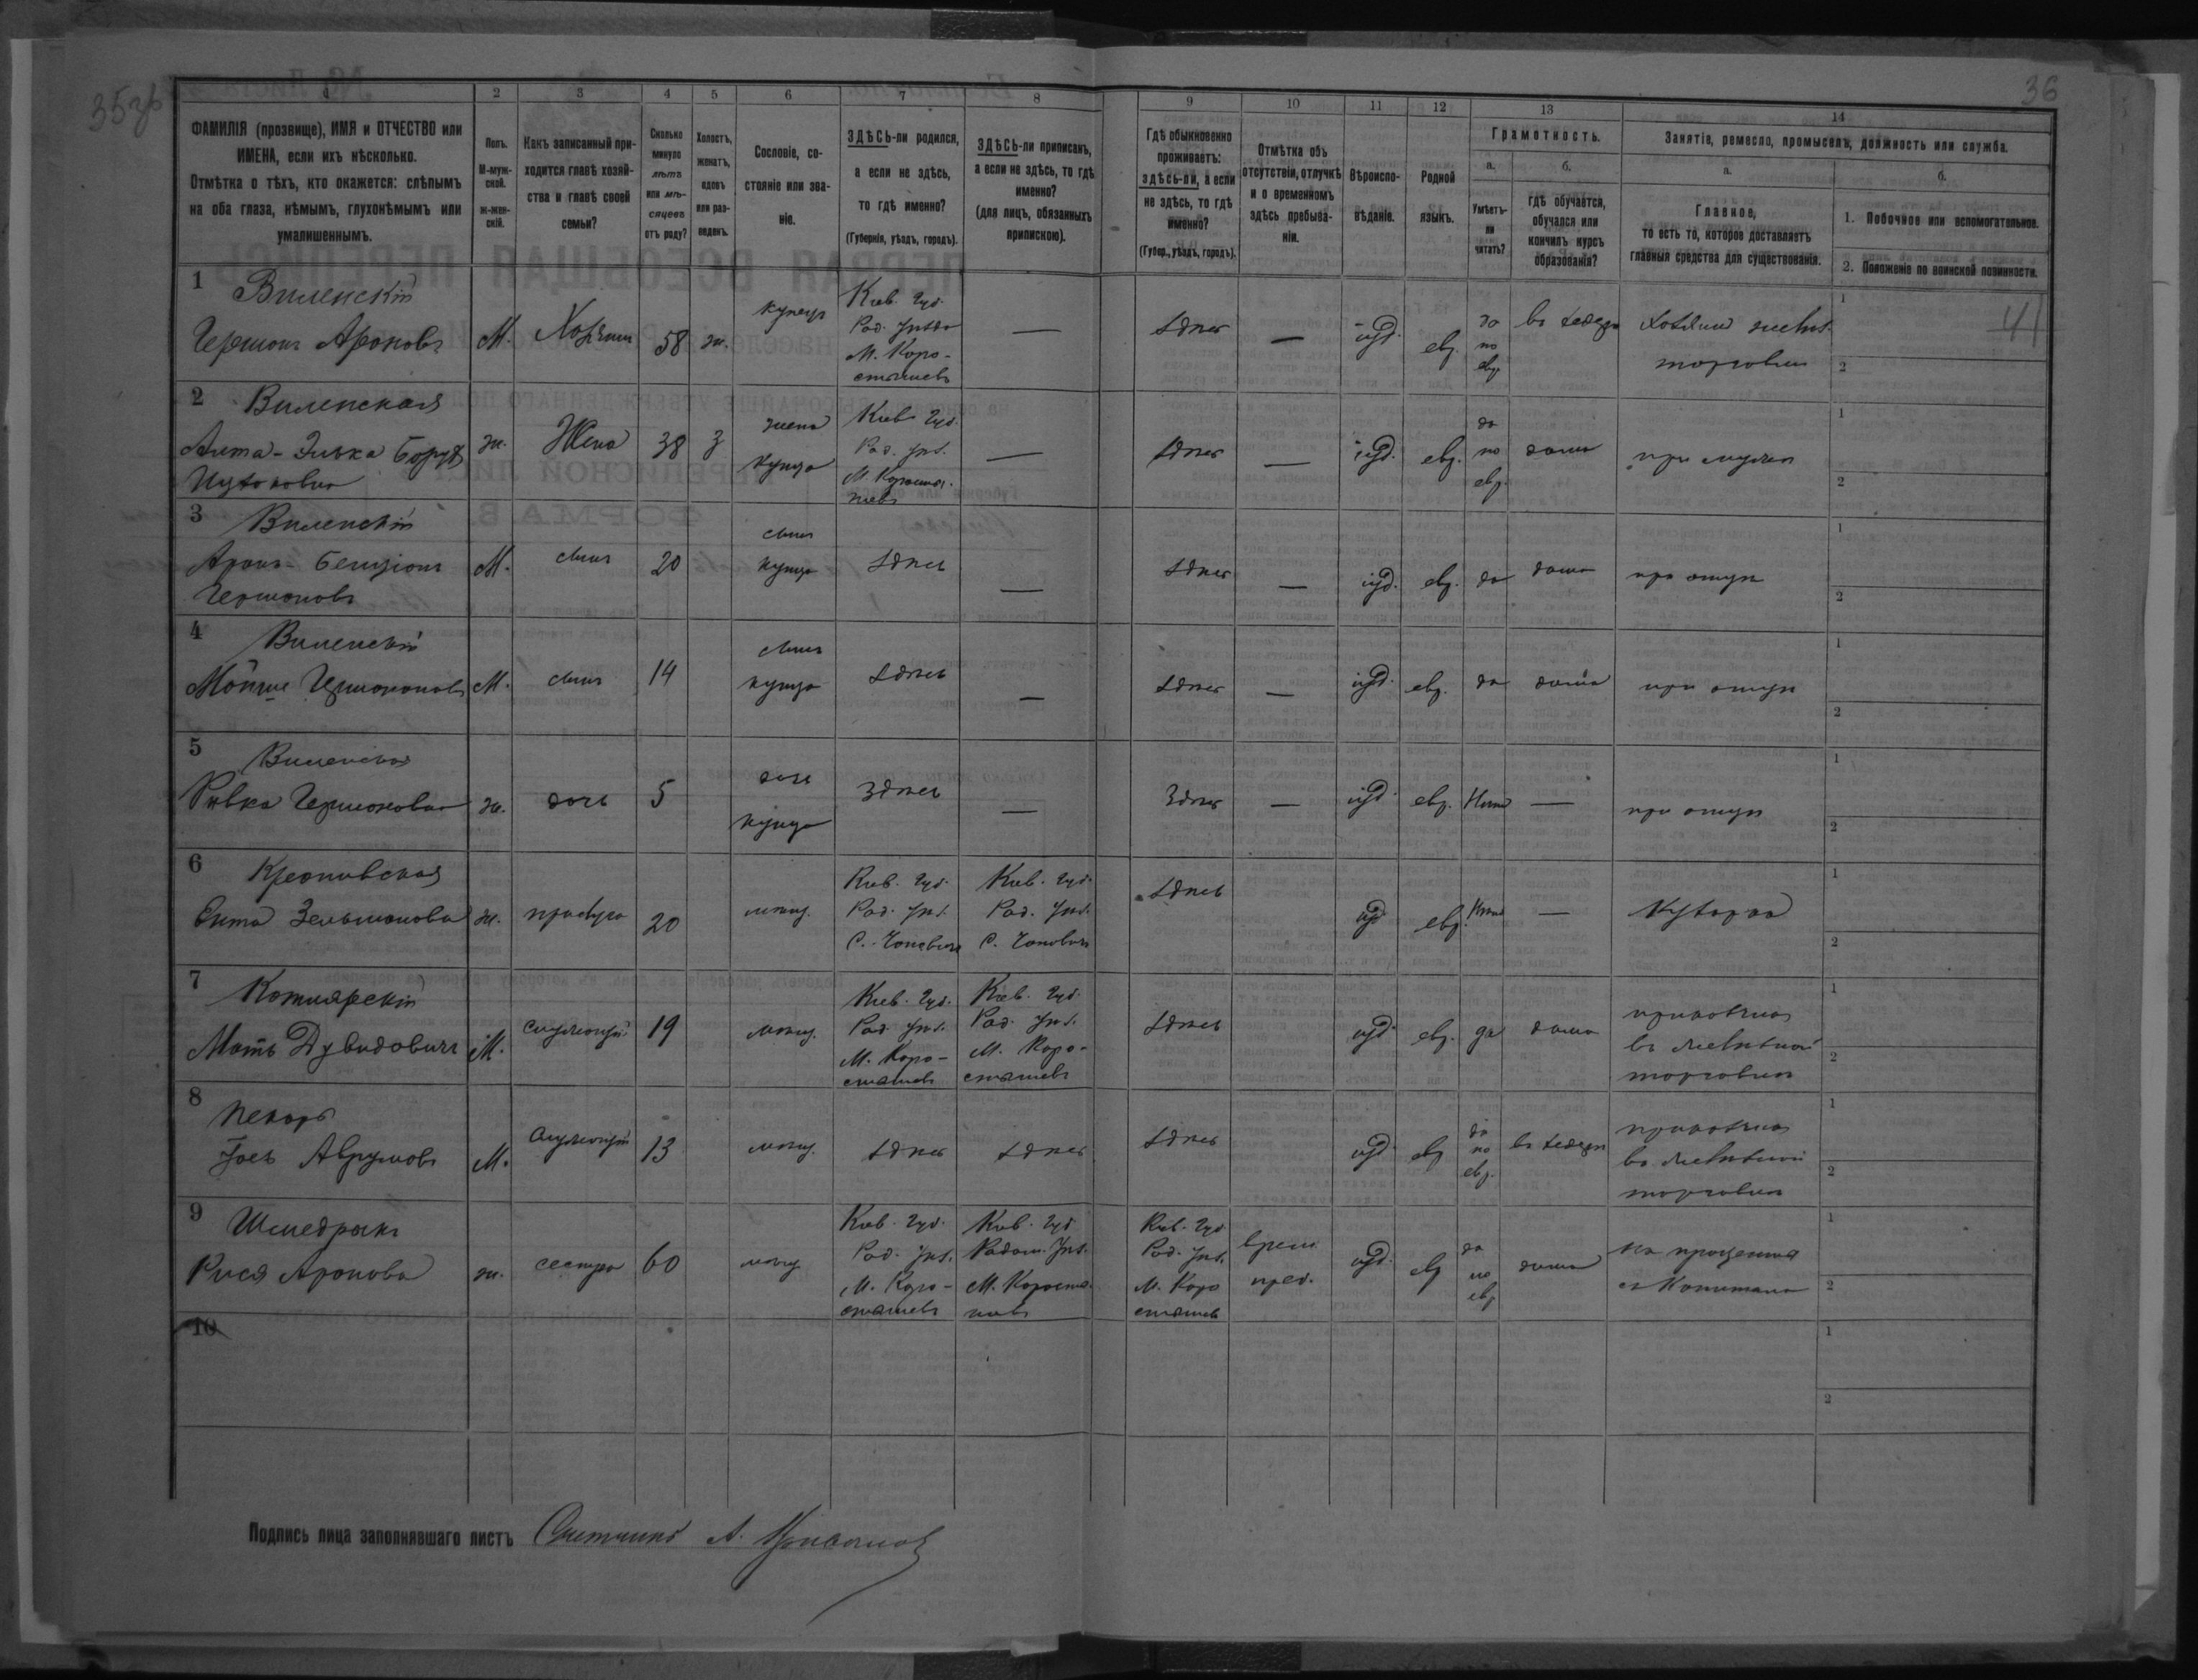 35об
36
1 2 3 4 5 6 7 8 9 10 11 12 13 14
ФАМИЛІЯ (прозвище), ИМЯ и ОТЧЕСТВО или
ИМЕНА, если ихъ нѣсколько.
Отмѣтка о тѣхъ, кто окажется: слѣпымъ
на оба глаза, нѣмымъ, глухонѣмымъ или
умалишеннымъ.
Полъ.
М-муж-
ской.
ж-жен-
скій.
Какъ записанный при-
ходится главѣ хозяй-
ства и главѣ своей
семьи?
Сколько
минуло
лѣтъ
или мѣ-
сяцевъ
отъ роду?
Холостъ,
женатъ,
вдовъ
или раз-
веденъ.
Сословіе, со-
стояніе или зва-
ніе.
ЗДѢСЬ-ли родился,
а если не здѣсь,
то гдѣ именно?
(Губернія, уѣздъ, городъ).
ЗДѢСЬ-ли приписанъ,
а если не здѣсь, то гдѣ
именно?
(для лицъ, обязанныхъ
припискою).
Гдѣ обыкновенно
проживаетъ:
здѣсь-ли, а если
не здѣсь, то гдѣ
именно?
(Губер., уѣздъ, городъ).
Отмѣтка объ
отсутствіи, отлучкѣ
и о временномъ
здѣсь пребыва-
ніи.
Вѣроиспо-
вѣданіе.
Родной
языкъ.
Грамотность.
а.
Умѣетъ-
ли
читать?
б.
гдѣ обучается,
обучался или
кончилъ курсъ
образованія?
Занятіе, ремесло, промыселъ, должность или служба.
а.
Главное,
то есть то, которое доставляетъ
главныя средства для существованія.
б.
1. Побочное или вспомогательное.
2. Положеніе по воинской повинности.
1 Виленскій
Гершонъ Ароновъ
М. Хозяинъ 58 ж. купецъ
Кіев. Губ.
Рад. уѣзда
М. Коро-
стышевъ
— здѣсь — іуд. евр.
да
по
евр.
въ хедерѣ
хозяинъ
торговли
1
2
41
2 Виленская
Елька Борух
Ицковна
ж. Жена 38 з
жена
купца
Кіев Губ.
Рад. уѣз.
М. Коросты-
шевъ
— здѣсь — іуд. евр.
да
по
евр.
дома
при мужѣ
1
2
3 Виленскій
Аронъ-Бенціонъ
Гершоновъ
М. сынъ 20
сынъ
купца
здѣсь — здѣсь — іуд. евр. да дома при отцѣ
1
2
4 Виленскій
Мойше Гершоновъ
М. сынъ 14
сынъ
купца
здѣсь — здѣсь — іуд. евр. да дома при отцѣ
1
2
5 Виленская
Ривка Гершоновна
ж. дочь 5
дочь
купца
здѣсь — здѣсь — іуд. евр. Нѣтъ — при отцѣ
1
2
6
Зельмонова
ж. прислуга 20 мѣщ.
Кіев. Губ.
Рад. уѣз.
С. Чоповичи
Кіев. Губ.
Рад. уѣз.
С. Чоповичи
здѣсь іуд евр. Нѣтъ — Кухарка
1
2
7 Котлярскій
Дувидовичъ
М. служащій 19 мѣщ.
Кіев. Губ.
Рад уѣз.
М. Коро-
стышевъ
Кіев. Губ.
Рад. уѣз.
М. Коро-
стышевъ
здѣсь іуд евр. да дома
приказчикъ
въ
торговлѣ
1
2
8 Пекарь
Аврумовъ
М. служащій 13 мѣщ. здѣсь здѣсь здѣсь іуд. евр
да
по
евр.
въ хедерѣ
приказчикъ
въ
торговлѣ
1
2
9
Рися Аронова
ж. сестра 60 мѣщ
Кіев. Губ.
Рад. уѣз.
М. Коро-
стышевъ
Кіев. Губ
Радом. уѣз.
М. Косты-
шевъ
Кіев. Губ
Рад. уѣз.
М. Коро
стышевъ
врем.
преб.
іуд. евр
да
по
евр
дома
на проценты
съ Капитала
1
2
10
1
2
Подпись лица заполнявшаго листъ Счетчикъ А.